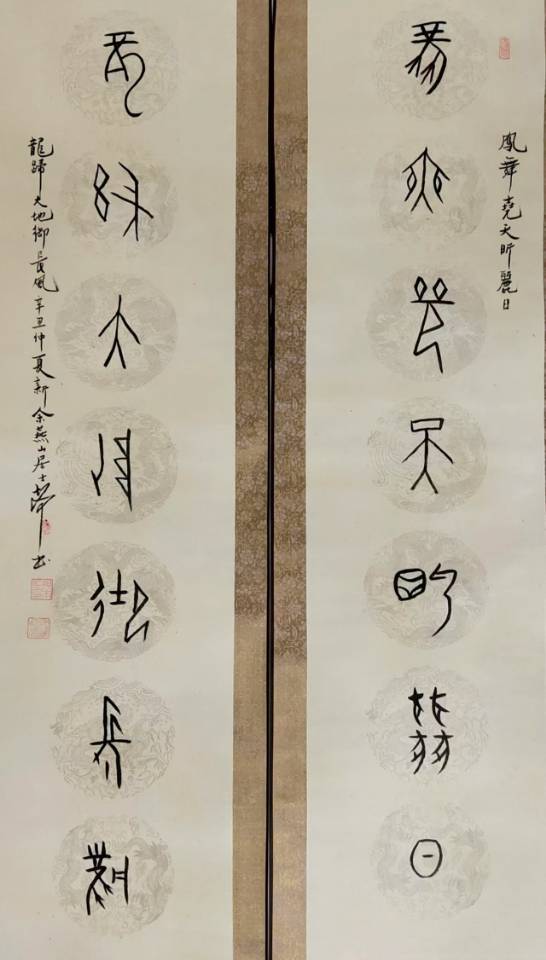 鳳舞堯天昕麗日
鳳舞堯天昕麗日
龍歸大地御長風
龍歸大地御長風辛丑仲夏新余燕山居士書